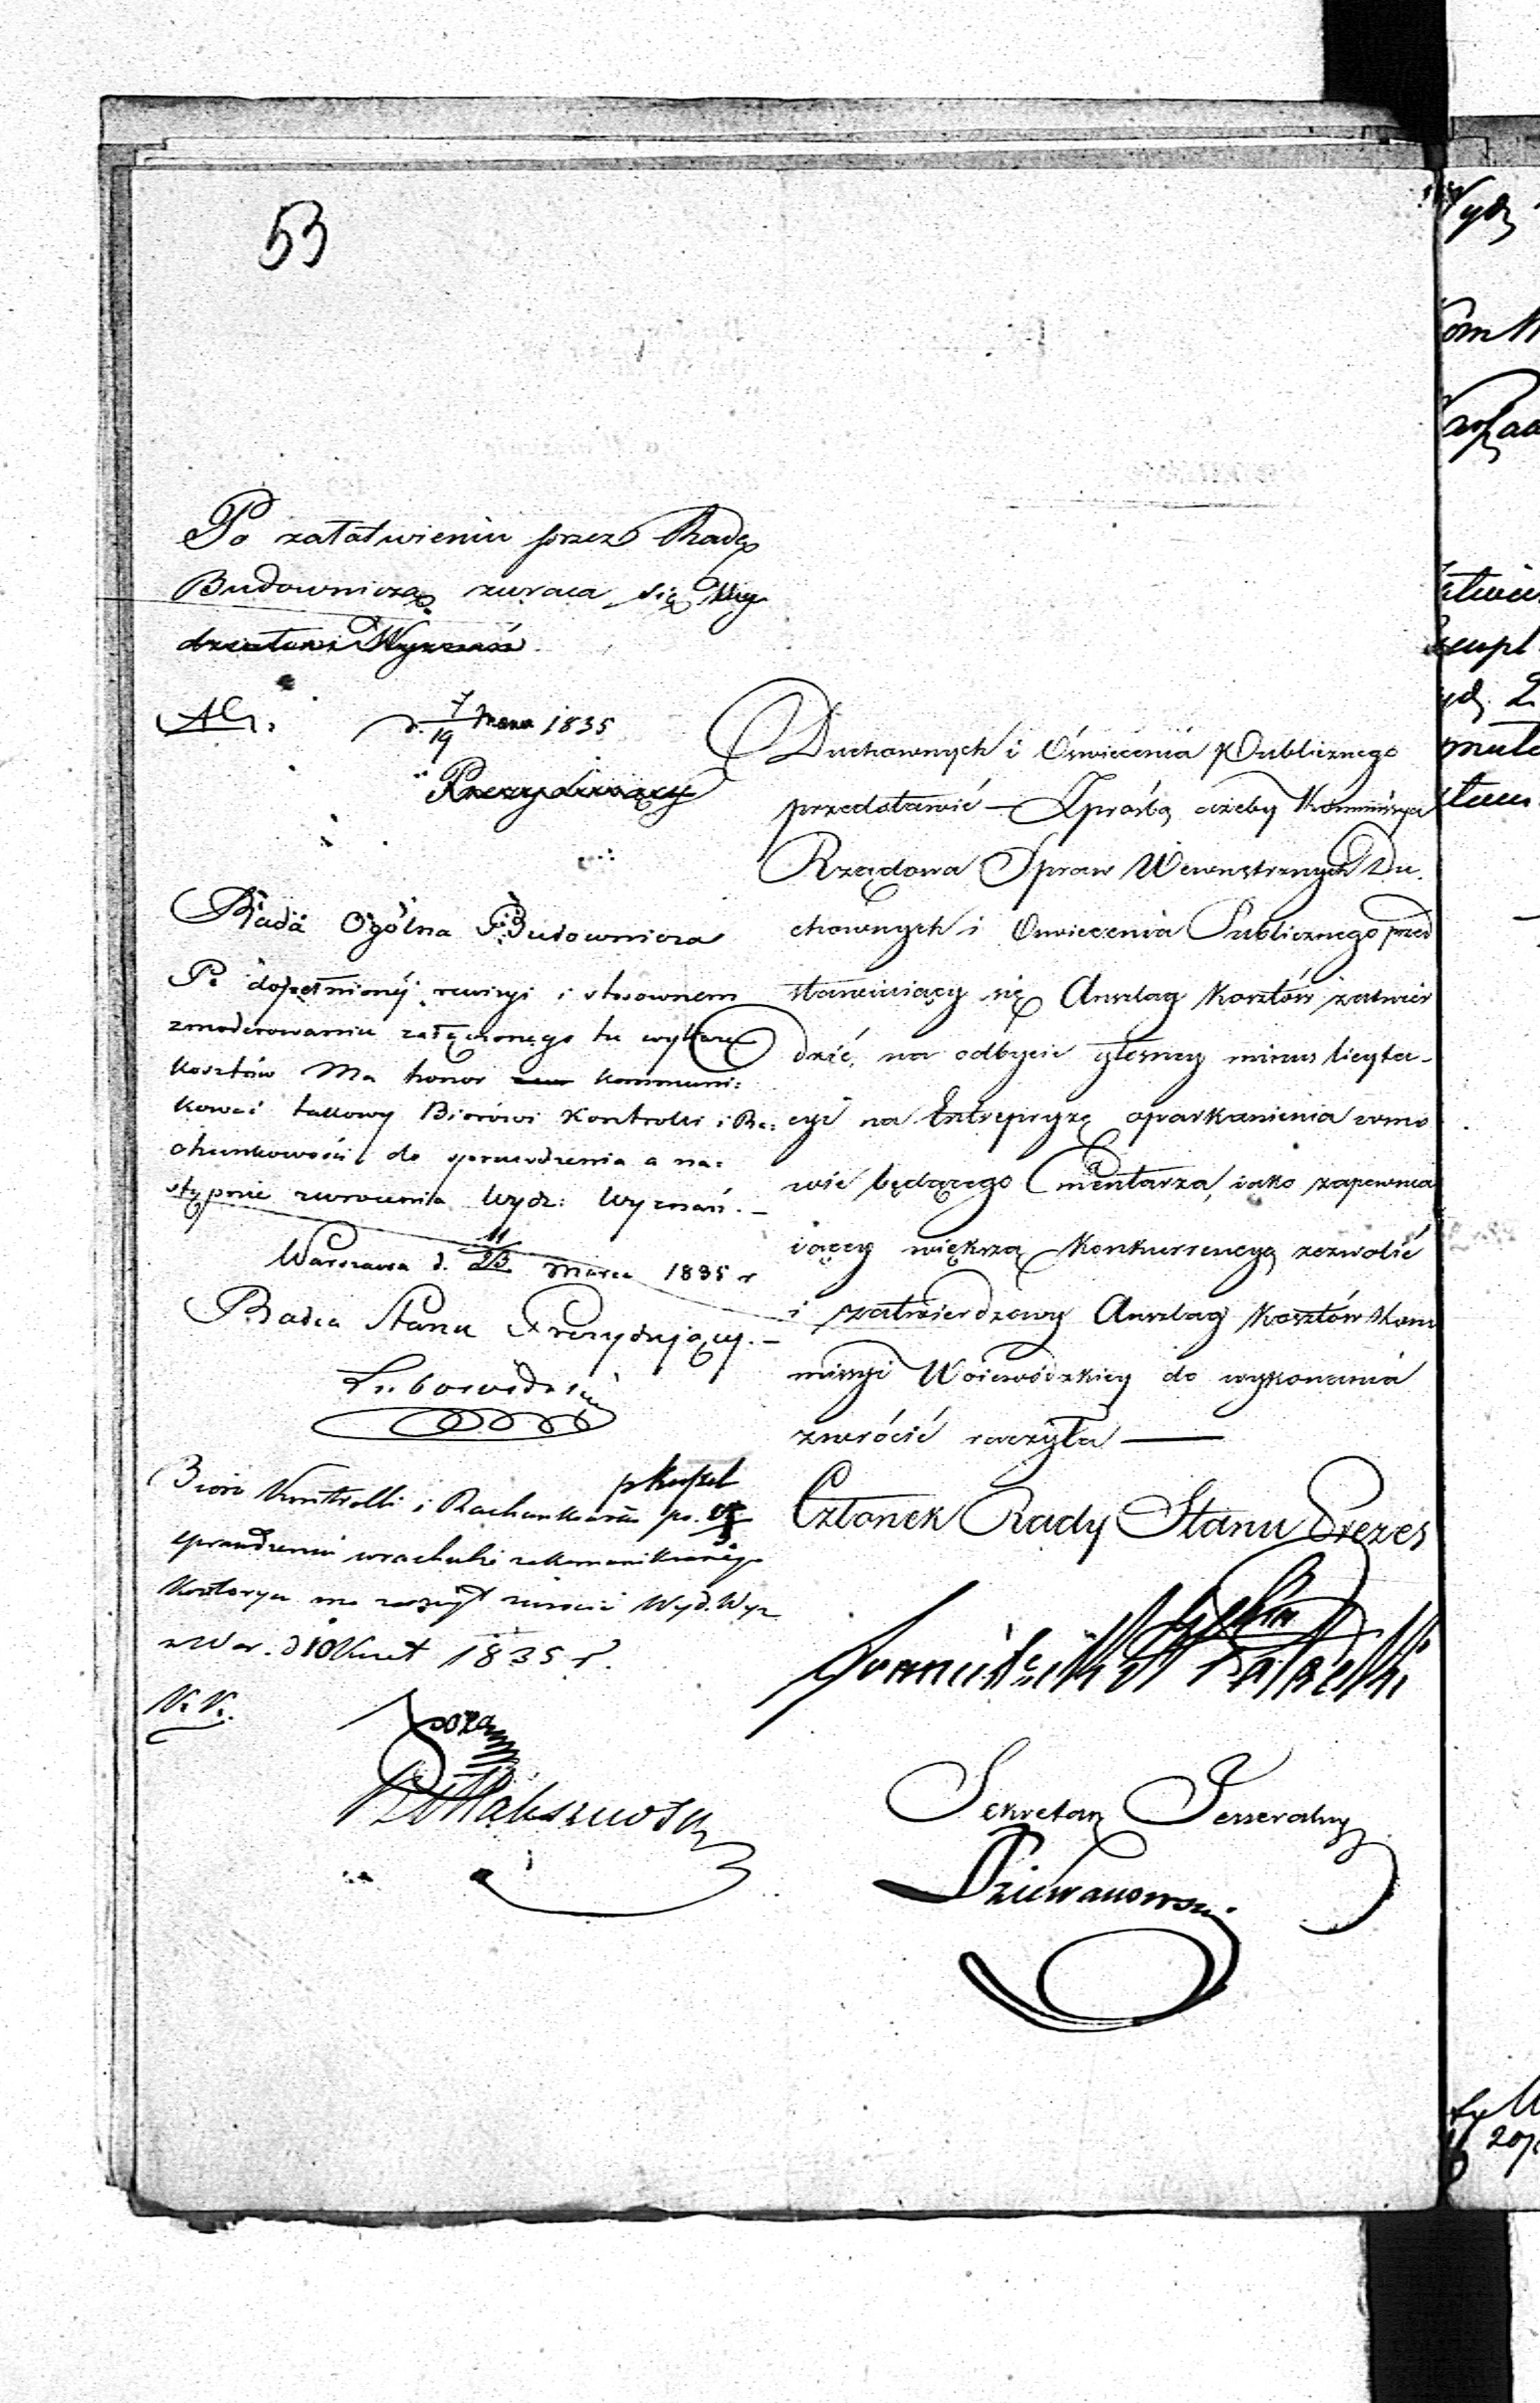 53
Po załatwieniu przez Radę
Budowniczą zwraca się Wy
działowi Wyznań
d. 7/19 Marca 1835
Prezydujący
Rada Ogólna Budownicza
Po dopełnionéj rewizyi i stosownem
zmoderowaniu załączonego tu wykazu
kosztów Ma honor kommuni:
kować takowy Biórowi Kontrolli i Ra:
chunkowości do sprawdzenia a na:
stępnie zwrócenia Wydz: Wyznań. –
Warszawa d. 11/23 Marca 1835 r
Radca Stanu Prezydujący. –
Lubowidzki
Bióro Kontrolli i Rachunkowości po
sprawdzeniu wrachuby zakomunikowanego
Kosztorysu ma zaszczyt zwrócić Wyd. Wyz
w War. d 10 Kwiet 1835 r.
Duchownych i Oświecenia Publicznego
przedstawić – z prośbą ażeby Kommissya
Rządowa Spraw Wewnętrznych Du.
chownych i Oswiecenia Publicznego przed
stawiaiący się Anszlag Kosztów zatwier
dzić, na odbycie głośney minus licyta-
cyi na Entrepryzę oparkanienia w mo
wie będącego Cmentarza, iako zapewnia
iącey większą Konkurrencyą zezwolić
i zatwierdzony Anszlag Kosztów Kom
missyi Woiewódzkiey do wykonania
zwrócić raczyła —
Członek Rady Stanu Prezes
Sekretarz Jeneralny
Dziewanowski